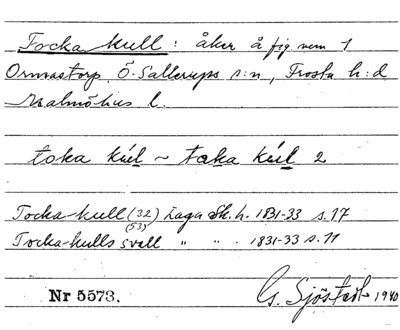 Tockakull: åker å fig. num 1
Ormastorp Ö. Sallerups s:n, Frosta h:d
Malmöhus l.
toka kúl ~ toka kúl 2
Tocka-kull (32) Laga Sk. h. 1831-33 s. 17
(53)
Tocka-kulls svall " " . 1831-33 s. 11
Nr 5573.
G. Sjöstedt 1940